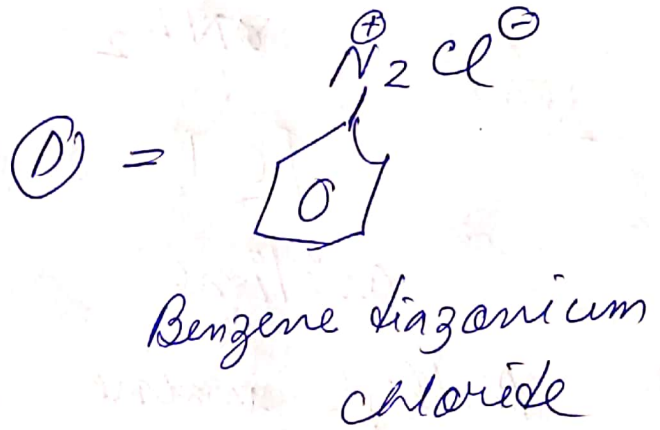 N₂⊕ Cl⊖
Ⓓ =
Benzene diazonium
chloride